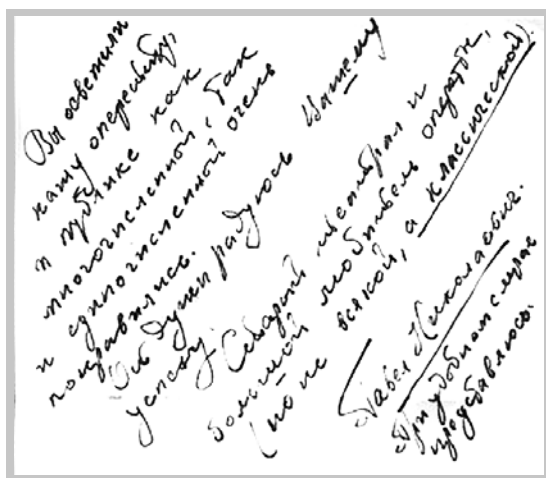 Вы осветили
нашу оперетку,
и публике как
многочисленной, так
и единочисленной очень
понравились.
От души радуюсь Вашему
успеху. Старый театрал и
большой любитель оперетты,
(но не всякой, а классической).
Павел Николаевич.
При удобном случае
представлюсь.